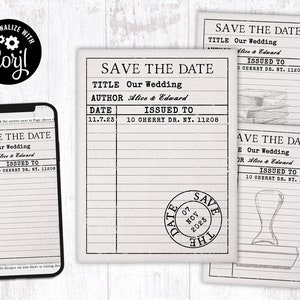 SAVE THE DATE
TITLE Our Wedding
AUTHOR Alice & Edward
DATE ISSUED TO
11.7.23 10 CHERRY DR. NY. 11208
SAVE THE DATE
07
NOV
2023
SAVE THE DATE
TITLE Our Wedding
AUTHOR Alice & Edward
ISSUED TO
10 CHERRY DR. NY. 11208
SAVE THE DATE
Our Wedding
Alice & Edward
ISSUED TO
10 CHERRY DR. NY. 11208
WITH
SAVE THE DATE
Our Wedding
Alice & Edward
ISSUED TO
10 CHERRY DR. NY. 11208